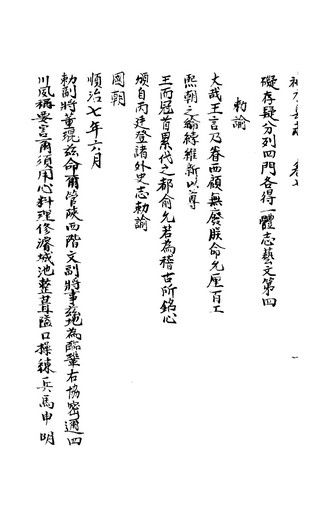 礙存疑分列四門各得一體志藝文第四
敕諭
大哉王言乃眷西顧無廢朕命允厘百工
熙朝之綸綍維新以尊
王而冠首累代之都俞允若為稽古所銘心
頒自丙廷登諸外史志勅諭
國朝
順治七年六月
勅副將董琨茲命爾管陝西階文副將事茲地為臨鞏右協密通四
川夙稱要害爾須用心料理修濬城池整葺隘口操練兵馬申明